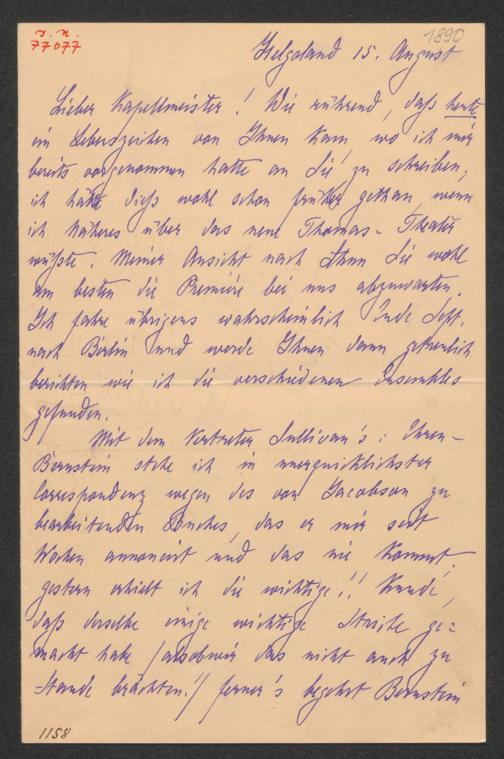 I. N.
77077
1890
Helgoland 15. August
Lieber Kapellmeister! Wie rührend, daß heute
ein Lebenszeichen von Ihnen kam, wo ich mir
bereits vorgenommen hatte an Sie zu schreiben,
ich hätte dieß wohl schon früher gethan, wenn
ich Näheres über das neue Thomas-Theater
wüßte. Meiner Ansicht nach thun Sie wohl
am besten die Première bei uns abzuwarten.
Ich fahre übrigens wahrscheinlich Ende Sept.
nach Berlin und werde Ihnen dann getreulich
berichten wie ich die verschiedenen Ensembles
gefunden.
Mit dem Vertreter Sullivan's: Ehren-
Bernstein stehe ich in unerquicklichster
Correspondenz wegen des von Jacobson zu
bearbeitenden Buches, das er mir seit
Wochen annoncirt und das nie kommt.
gestern erhielt ich die wichtige!! Kunde,
daß derselbe einige wichtige Striche ge=
macht habe /als ob wir das nicht auch zu
Stande brächten!/ ferner's begehrt Bernstein
1158